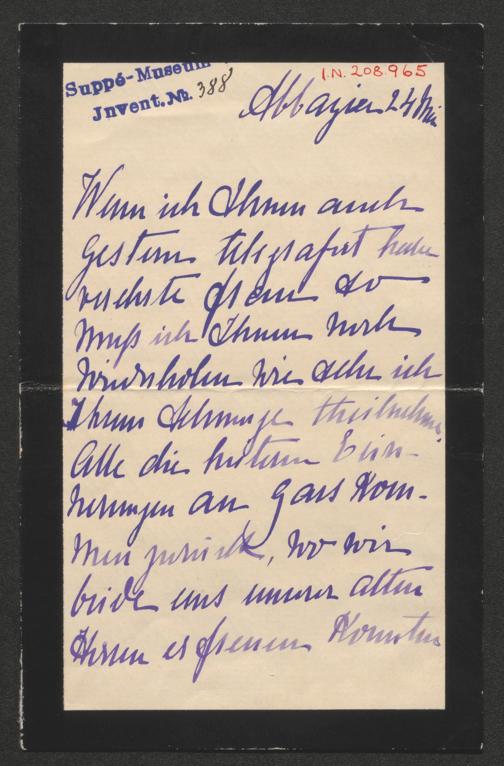 Suppé-Museum
Invent. No. 388
I.N. 208.965
Abbazia 24 Mai
Wenn ich Ihnen auch
gestern telegrafirt habe
verehrte Frau so
muß ich Ihnen noch
wiederholen wie sehr ich
Ihrem Schmerze theilnehme.
Alle die heiteren Erin-
nerungen an Gars kom-
men zurück, wo wir
beide uns unserer alten
Herren erfreuen konnten